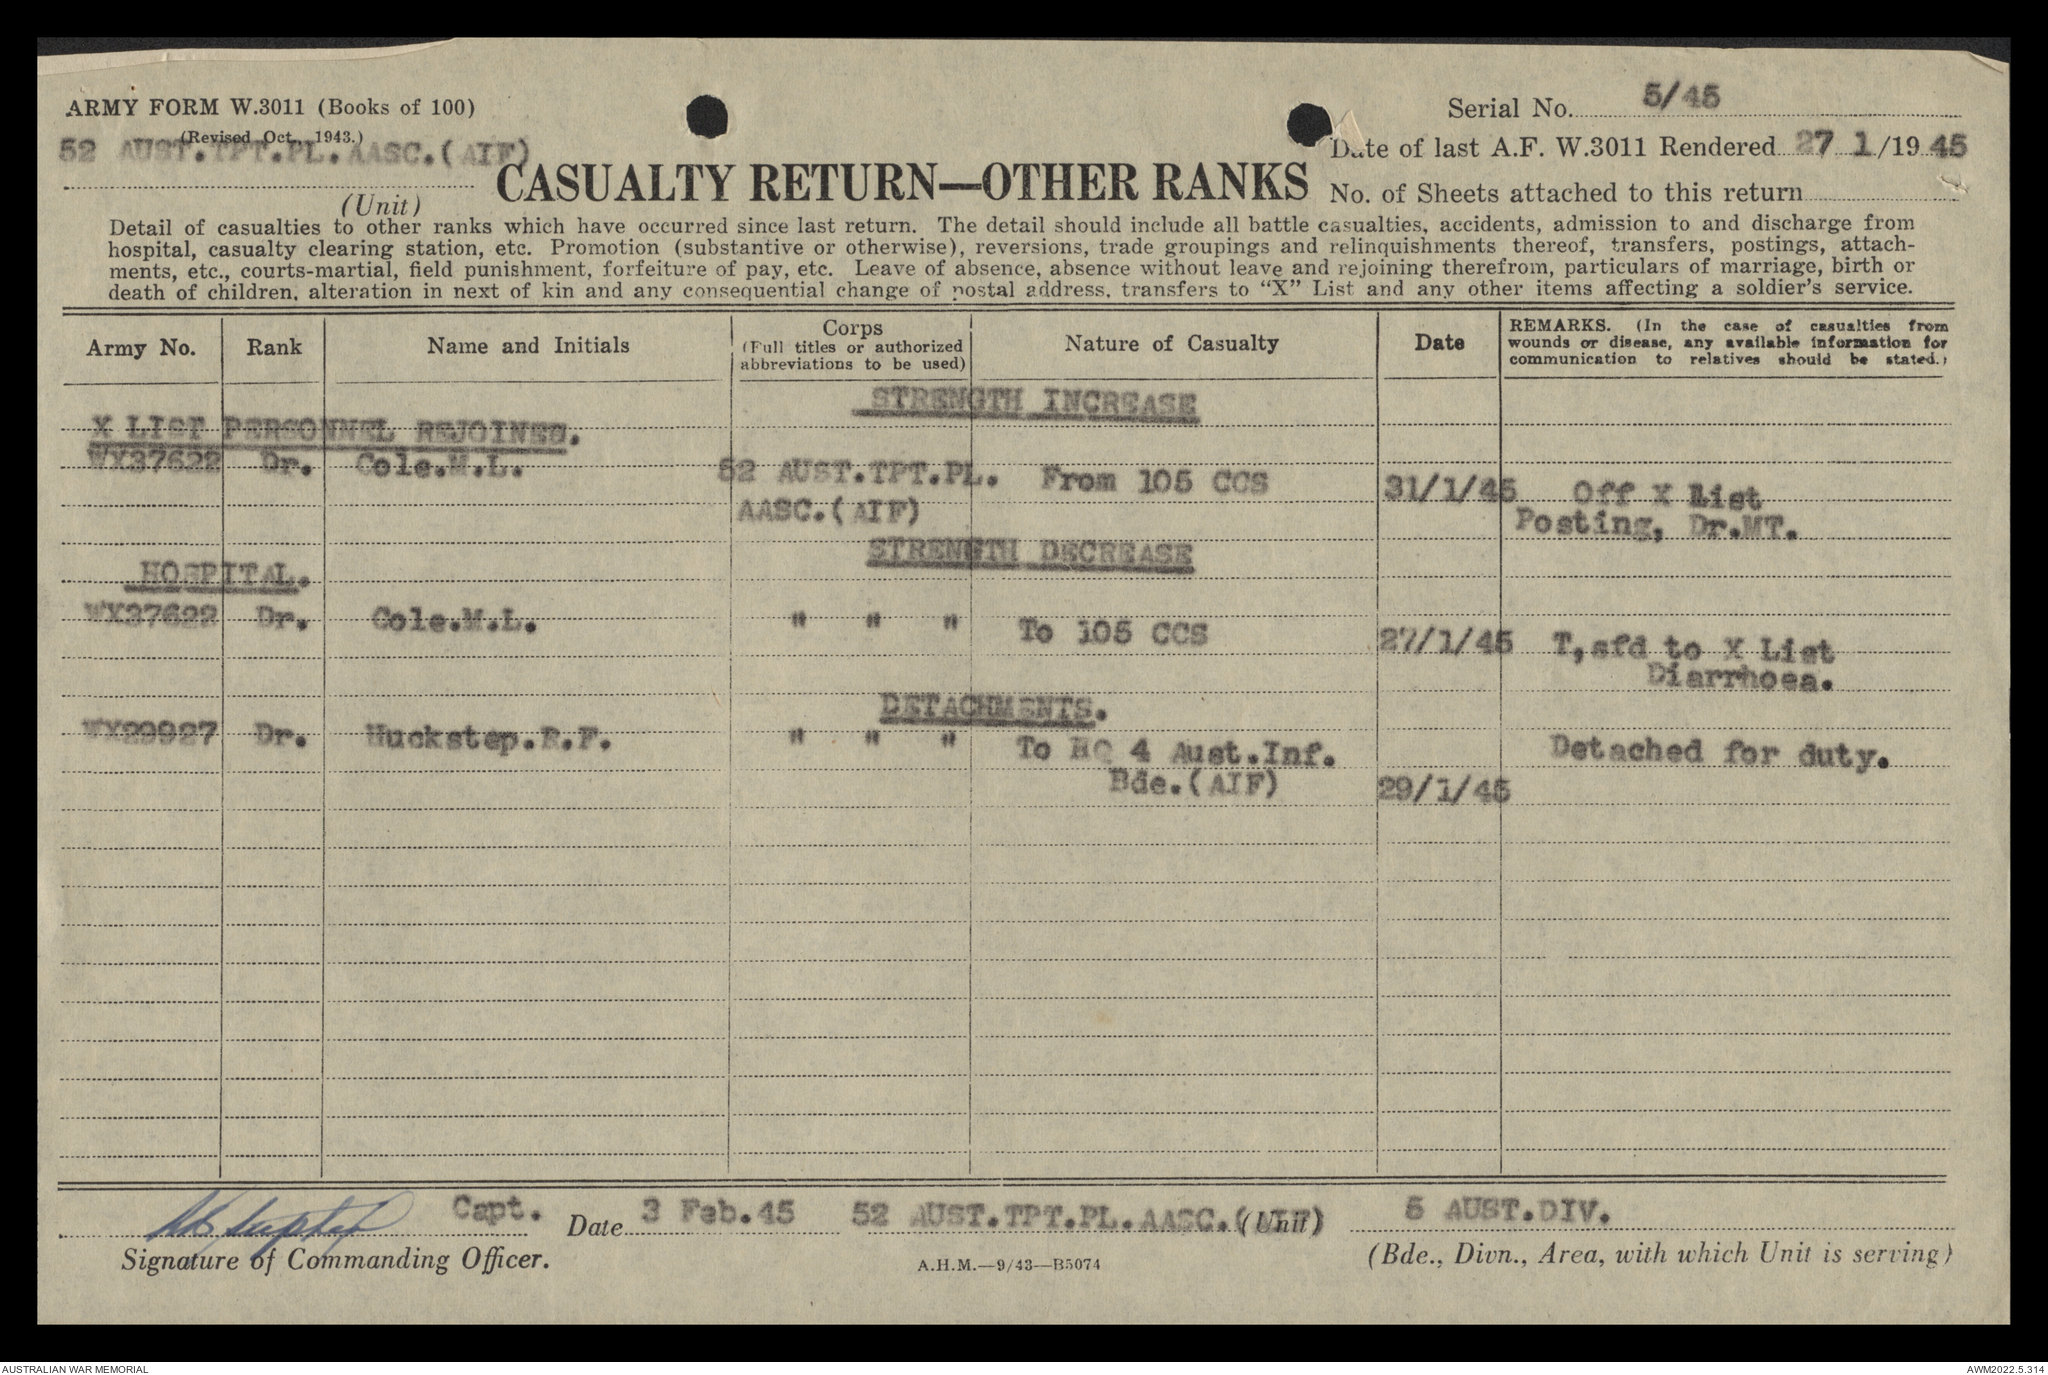 ARMY FORM W.3011 (Books of 100)
(Revised Oct., 1943.)
52 AUST.TPT.PL.AASC.(AIF)
(Unit)
CASUALTY RETURN—OTHER RANKS
Serial No. 5/45
Date of last A.F. W.3011 Rendered 27 1/19 45
No. of Sheets attached to this return
Detail of casualties to other ranks which have occurred since last return. The detail should include all battle casualties, accidents, admission to and discharge from
hospital, casualty clearing station, etc. Promotion (substantive or otherwise), reversions, trade groupings and relinquishments thereof, transfers, postings, attach-
ments, etc., courts-martial, field punishment, forfeiture of pay, etc. Leave of absence, absence without leave and rejoining therefrom, particulars of marriage, birth or
death of children, alteration in next of kin and any consequential change of postal address, transfers to "X" List and any other items affecting a soldier's service.
Army No. Rank Name and Initials Corps (Full titles or authorized abbreviations to be used) Nature of Casualty Date REMARKS. (In the case of casualties from wounds or disease, any available information for communication to relatives should be stated.)
STRENGTH INCREASE
X LIST PERSONNEL REJOINED.
WX37622 Dr. Cole.M.L. 52 AUST.TPT.PL. From 105 CCS 31/1/45 Off X List
AASC.(AIF) Posting, Dr.MT.
STRENGTH DECREASE
HOSPITAL.
WX37622 Dr. Cole.M.L. " " " To 105 CCS 27/1/45 T,sfd to X List
Diarrhoea.
DETACHMENTS.
WX29927 Dr. Huckstep.R.F. " " " To HQ 4 Aust.Inf. Detached for duty.
Bde.(AIF) 29/1/45
Capt. Date 3 Feb.45 52 AUST.TPT.PL.AASC.(AIF) (Unit) 5 AUST.DIV.
Signature of Commanding Officer. A.H.M.—9/43—B5074 (Bde., Divn., Area, with which Unit is serving)
AUSTRALIAN WAR MEMORIAL AWM2022.5.314